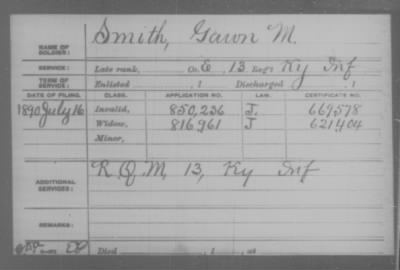 NAME OF SOLDIER: Smith, Gawn M.
SERVICE: Late rank, Co. E, 13 Reg't Ky Inf
TERM OF SERVICE: Enlisted , 1 Discharged , 1
DATE OF FILING. CLASS. APPLICATION NO. LAW. CERTIFICATE NO.
1890 July 16 Invalid, 850,236 J. 669,578
Widow, 816,961 J 621,404
Minor,
ADDITIONAL SERVICES: R. Q. M, 13, Ky Inf
REMARKS:
Died , 1 , at